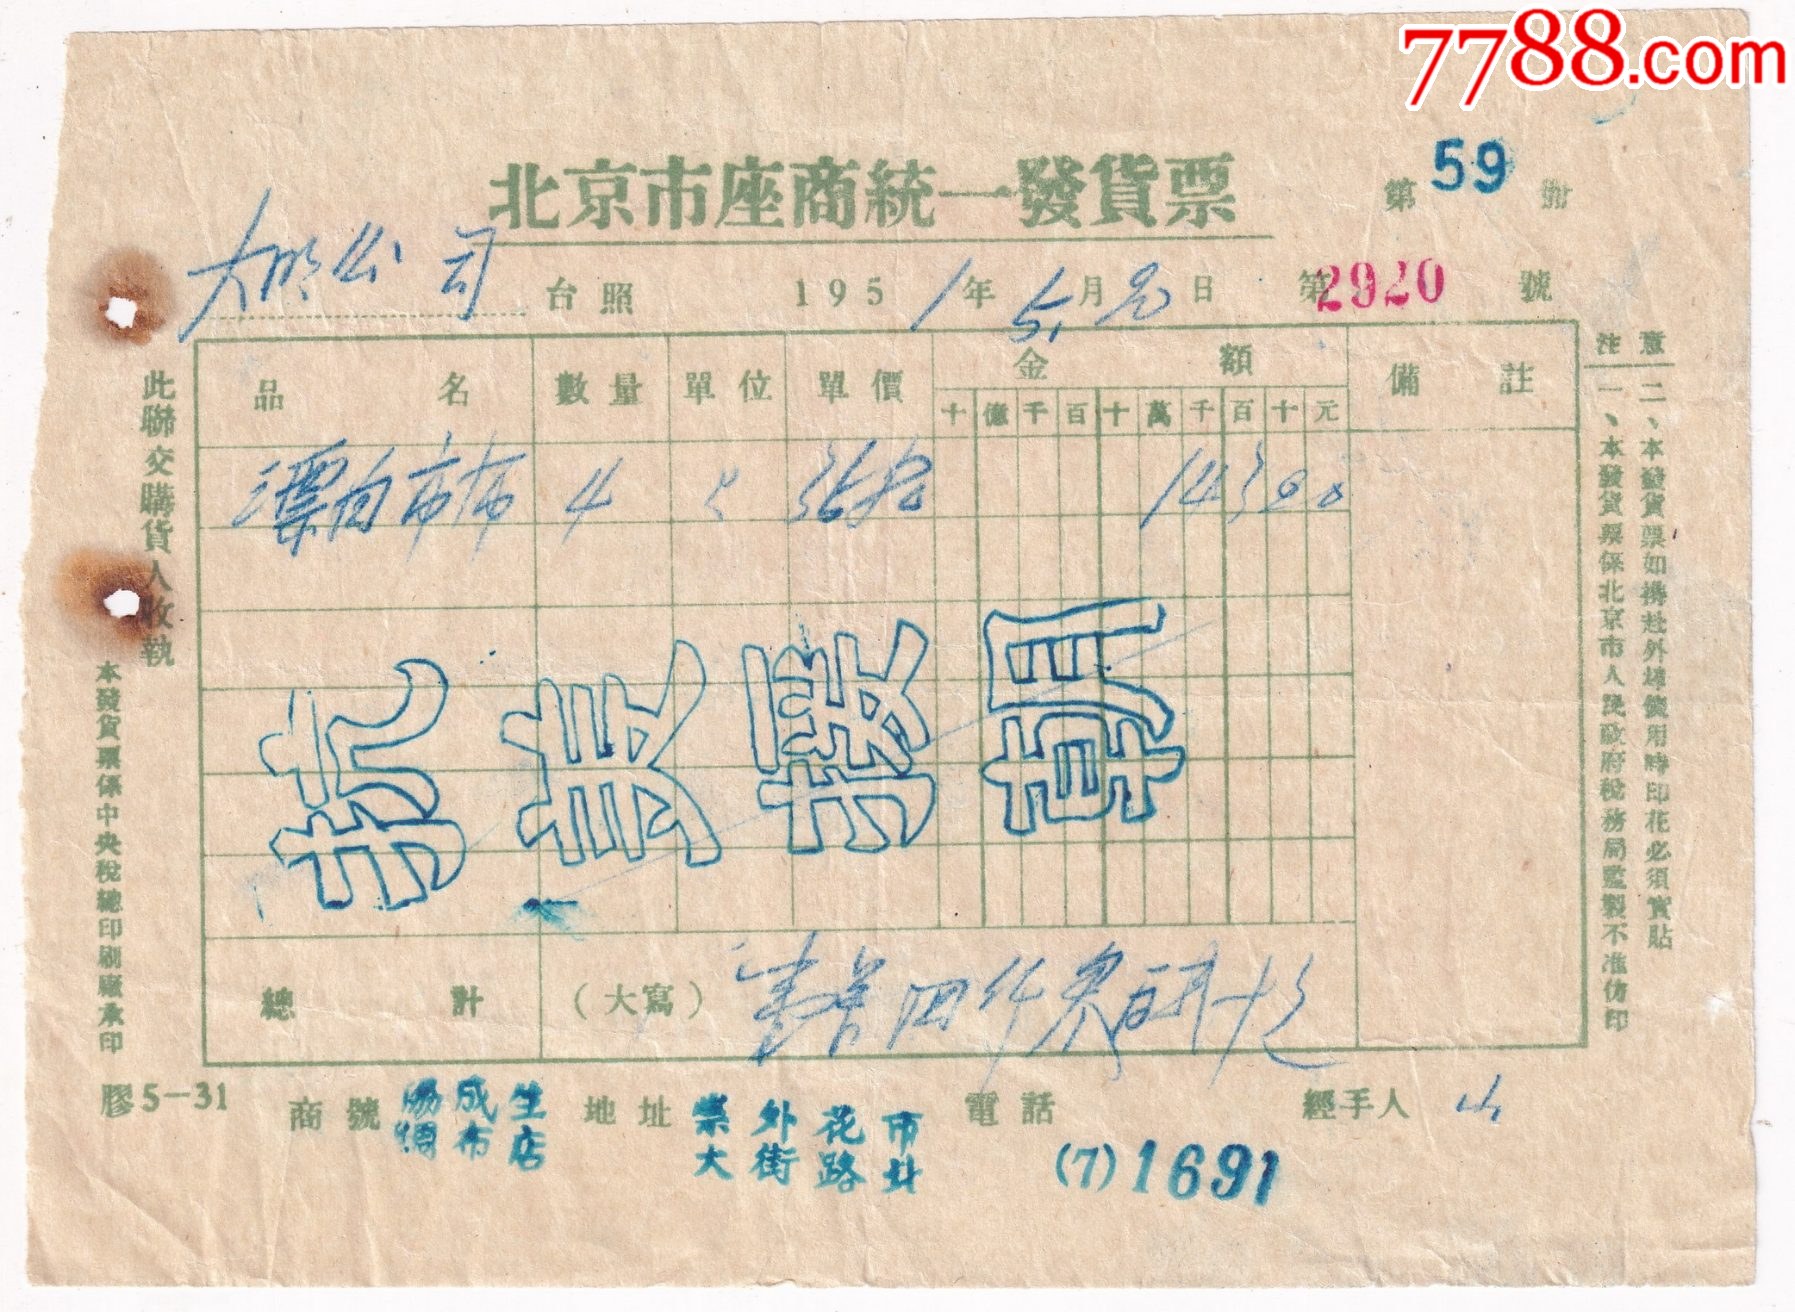 7788.com
北京市座商統一發貨票
第 59 冊
大明公司 台照 1951年 5月 日 第2920號
品名 數量 單位 單價 金額 備註
十億千百十萬千百十元
漂白市布 4 尺
總計 （大寫） 壹萬四仟
商號 協成生綢布店 地址 崇外花市大街路北 電話 (7)1691 經手人
膠5-31
此聯交購貨人收執
本發貨票係中央稅總印刷廠承印
注意
一、本發貨票係北京市人民政府稅務局監製不准仿印
二、本發貨票如携赴外埠使用時印花必須實貼